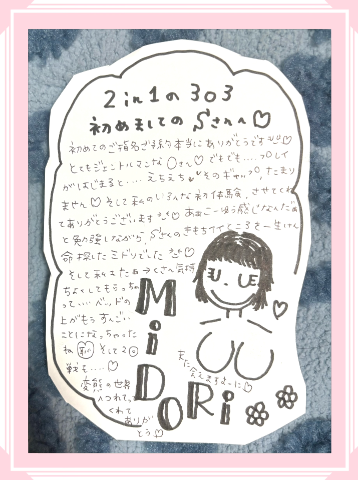 2in1の303
初めましてのSさんへ♡
初めてのご指名ご予約本当にありがとうです♡
とてもジェントルマンな〇さん♡でもでも‥‥プレイ
がはじまると‥‥えちえち そのギャップ、たまり
ません♡そして私のいろんな初体験、させてくれ
てありがとうございます♡あぁこーゆう感じなんだぁ
と勉強しながら、Sさんのきもちイイところを一生けん
命探したミドリでした
そして私もたぁーくさん気持
ちよくしてもらっちゃ
って‥‥ベッドの
上がもうすんごい
ことになっちゃった
ね 恥 そして2回
戦も‥‥♡
変態の世界
へつれて
くれて
ありが
とう♡
MiDORi
また会えますように♡